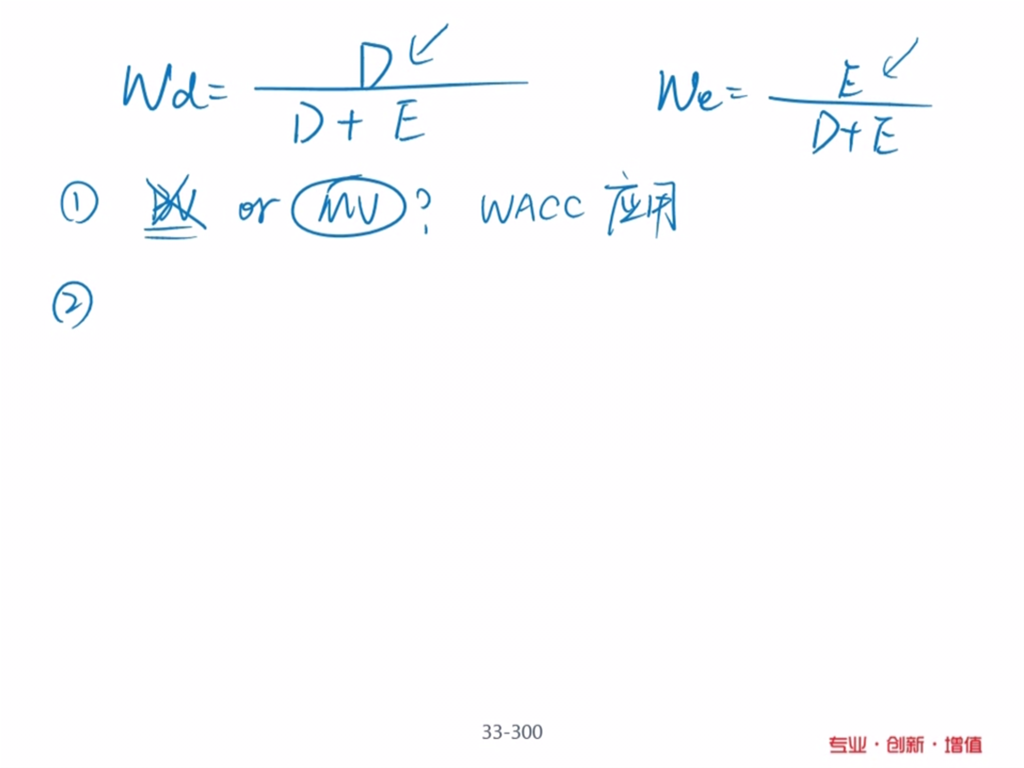 Wd = D / (D + E)    We = E / (D + E)
① BV or MV? WACC 应用
②
33-300
专业·创新·增值